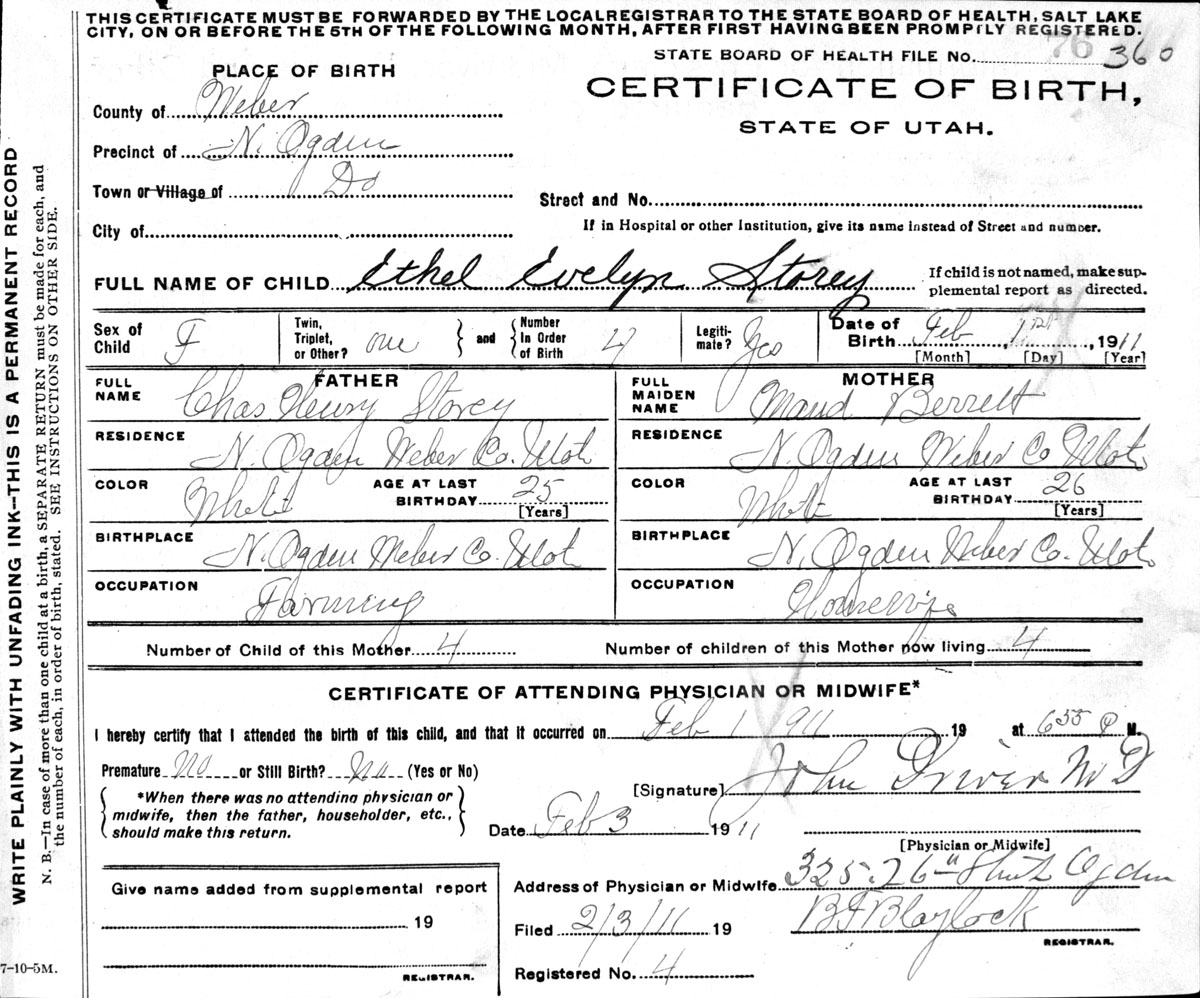 THIS CERTIFICATE MUST BE FORWARDED BY THE LOCALREGISTRAR TO THE STATE BOARD OF HEALTH, SALT LAKE
CITY, ON OR BEFORE THE 5TH OF THE FOLLOWING MONTH, AFTER FIRST HAVING BEEN PROMPTLY REGISTERED.
76
STATE BOARD OF HEALTH FILE No. 360
PLACE OF BIRTH
CERTIFICATE OF BIRTH,
STATE OF UTAH.
County of Weber
Precinct of N. Ogden
Town or Village of Do
Street and No.
City of
If in Hospital or other Institution, give its name instead of Street and number.
FULL NAME OF CHILD Ethel Evelyn Storey
If child is not named, make sup-
plemental report as directed.
Sex of Child F
Twin, Triplet, or Other? one
and
Number In Order of Birth 4
Legiti-mate? Yes
Date of Birth Feb 1st, 1911
[Month] [Day] [Year]
FATHER
FULL NAME Chas Henry Storey
RESIDENCE N. Ogden Weber Co. Utah
COLOR White
AGE AT LAST BIRTHDAY 25
[Years]
BIRTHPLACE N. Ogden Weber Co. Utah
OCCUPATION Farming
MOTHER
FULL MAIDEN NAME Maud Berrett
RESIDENCE N. Ogden Weber Co Utah
COLOR White
AGE AT LAST BIRTHDAY 26
[Years]
BIRTHPLACE N. Ogden Weber Co. Utah
OCCUPATION Housewife
Number of Child of this Mother 4
Number of children of this Mother now living 4
CERTIFICATE OF ATTENDING PHYSICIAN OR MIDWIFE*
I hereby certify that I attended the birth of this child, and that it occurred on Feb 1 911 19 at 6 55 P M.
Premature No or Still Birth? No (Yes or No)
*When there was no attending physician or
midwife, then the father, householder, etc.,
should make this return.
[Signature] John Driver M D
Date Feb 3 1911
[Physician or Midwife]
Give name added from supplemental report
19
REGISTRAR.
Address of Physician or Midwife 325. 26th Street Ogden
Filed 2/3/11 19
B F Blaylock
REGISTRAR.
Registered No. 4
WRITE PLAINLY WITH UNFADING INK--THIS IS A PERMANENT RECORD
N. B.—In case of more than one child at a birth, a SEPARATE RETURN must be made for each, and
the number of each, in order of birth, stated. SEE INSTRUCTIONS ON OTHER SIDE.
7-10-5M.